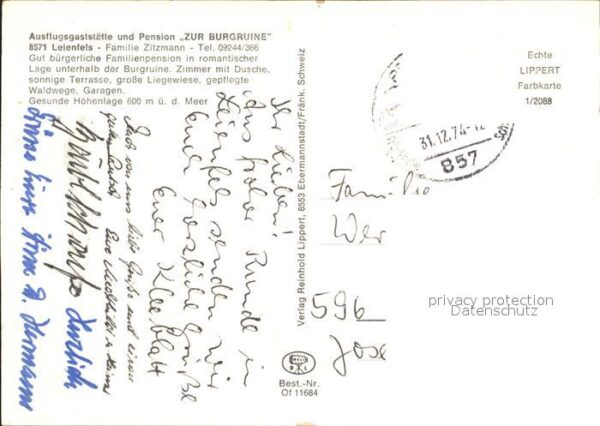 Ausflugsgaststätte und Pension „ZUR BURGRUINE"
8571 Leienfels - Familie Zitzmann - Tel. 09244/366
Gut bürgerliche Familienpension in romantischer
Lage unterhalb der Burgruine. Zimmer mit Dusche,
sonnige Terrasse, große Liegewiese, gepflegte
Waldwege, Garagen.
Gesunde Höhenlage 600 m ü. d. Meer
Ihr Lieben!
Aus froher Runde in
Leienfels senden wir
euch herzliche Grüße
Euer Kleeblatt
Auch von uns liebe Grüße und einen
guten Rutsch Eure
Herzlich
Grüße
Hermann
Verlag Reinhold Lippert, 8553 Ebermannstadt/Fränk. Schweiz
Best.-Nr.
Of 11684
Echte
LIPPERT
Farbkarte
1/2088
31.12.74-12
857
Familie
Wer
596
Jose
privacy protection
Datenschutz